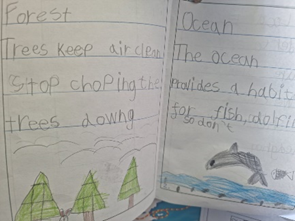 Forest
Trees keep air clean
Stop choping the
trees downg
Ocean
The ocean
provides a habit
for fish, dolfi
so don't